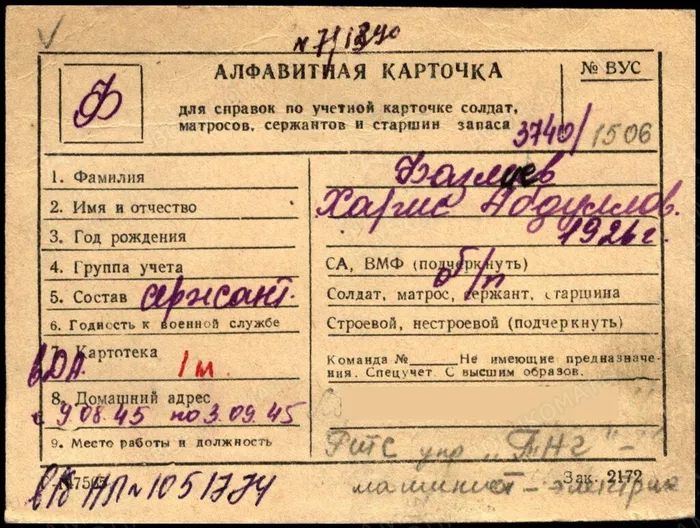 №7/1340
АЛФАВИТНАЯ КАРТОЧКА
№ ВУС
Ф
для справок по учетной карточке солдат,
матросов, сержантов и старшин запаса
3740/1506
1. Фамилия
Фазлиев
2. Имя и отчество
Харис Абдуллов.
3. Год рождения
1926 г.
4. Группа учета
СА, ВМФ (подчеркнуть)
об/п
5. Состав сержант.
Солдат, матрос, сержант, старшина
6. Годность к военной службе
Строевой, нестроевой (подчеркнуть)
7. Картотека 1м.
Команда № Не имеющие предназначе-
ния. Спецучет. С высшим образов.
8. Домашний адрес
с 9.08.45 по 3.09.45
9. Место работы и должность
упр „ТНГ"-
Зак. 2172
машинист-электрик
в/б НЛ №1051774